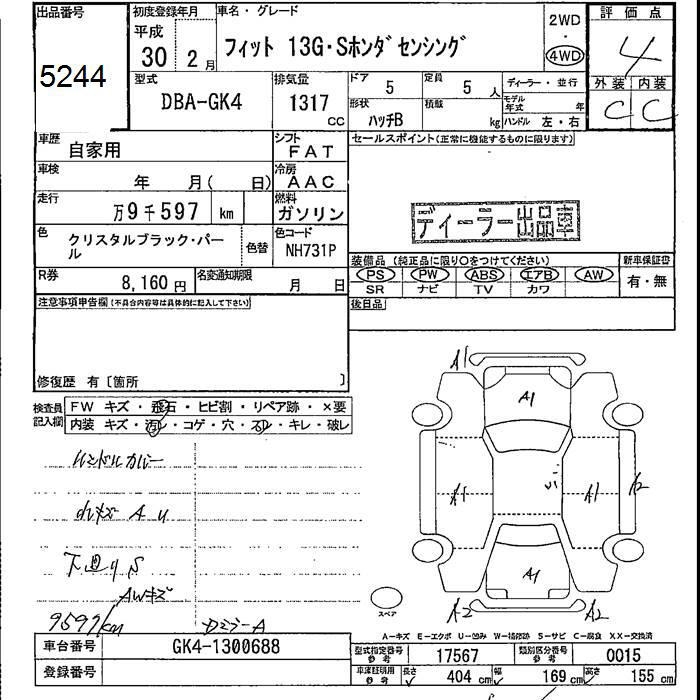 出品番号 初度登録年月 車名・グレード 2WD ・ 4WD 評価点
5244 平成 30年 2月 フィット 13G・Sホンダセンシング 4
型式 排気量 ドア 定員 ディーラー・並行 外装 内装
DBA-GK4 1317 cc 5 5人 モデル年式 年 C C
形状 積載
ハッチB kg ハンドル 左・右
車歴 自家用 シフト FAT セールスポイント(正常に機能するものに限ります)
車検 年 月( 日) 冷房 AAC
走行 万9千597 km 燃料 ガソリン ディーラー出品車
色 クリスタルブラック・パール 色替 色コード NH731P
装備品(純正品に限り○をつけてください) 新車保証書
R券 8,160円 名変通知期限 月 日 PS PW ABS エアB AW 有・無
SR ナビ TV カワ
注意事項申告欄(不具合内容等は具体的に記入して下さい) 後日品
修復歴 有〔箇所 〕
検査員記入欄 FW キズ・飛石・ヒビ割・リペア跡・×要
内装 キズ・汚レ・コゲ・穴・スレ・キレ・破レ
A1
A1
ハンドルカバー
A1 A1 A2
小キズ A U
下廻り S
A1
AWキズ
9597km Dミラー A
A2 A2
スペア
A-キズ E-エクボ U-凹み W-補修跡 S-サビ C-腐食 XX-交換済
車台番号 GK4-1300688 型式指定番号 参考 17567 類別区分番号 参考 0015
登録番号 車庫証明用 参考 長さ 404cm 幅 169cm 高さ 155cm